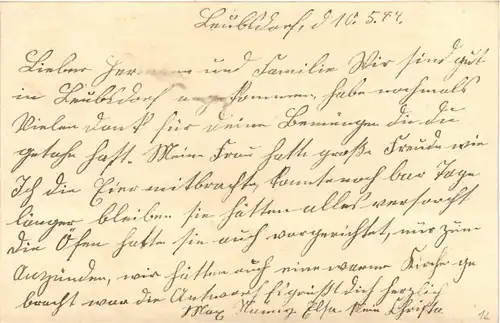 Leubsdorf, d 10. 5. 44.
Lieber Her und Familie Wir sind gut
in Leubsdorf angekommen, habe nochmals
Vielen dank für deine Bemüngen die du
getahn hast. Meine Frau hatte große Freude wie
Ich die Eier mitbrachte, konnte noch bar Tage
länger bleiben sie hätten alles versorcht
die Öfen hatte sie auch vorgerichtet, nur zum
Anzünden, wir hätten auch eine warme Kirche ge
bracht war die Antword Es grüßt dich herzlich
Max Elsa Christa
12